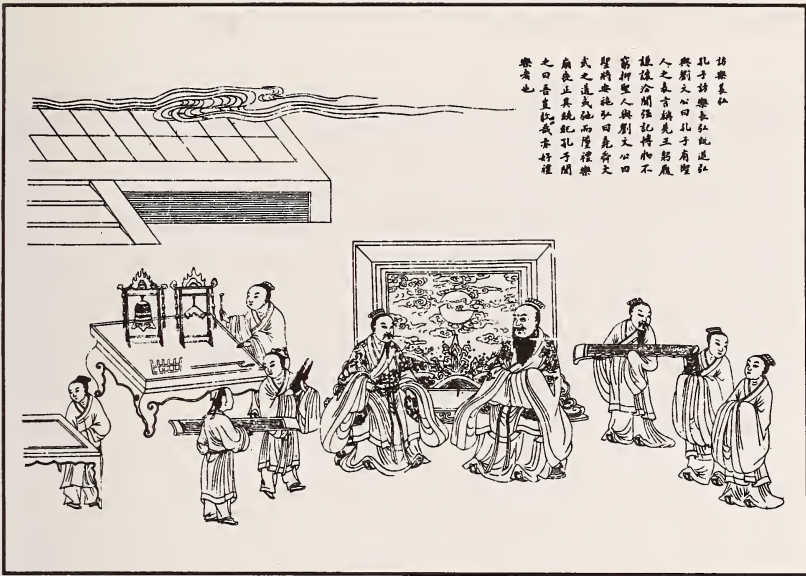 訪樂萇弘
孔子訪樂萇弘既退弘
與劉文公曰孔子有聖
人之表言稱先王躬履
謙讓洽聞强記博物不
窮抑聖人與劉文公曰
聖將安施弘曰堯舜文
武之道或弛而墜禮樂
崩喪正其統紀孔子聞
之曰吾豈敢哉亦好禮
樂者也